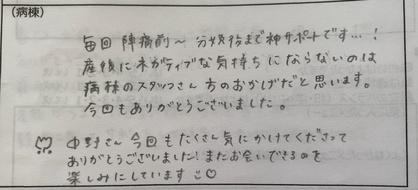 (病棟)
毎回陣痛前~分娩後まで神サポートです…!
産後にネガティブな気持ちにならないのは
病棟のスタッフさん方のおかげだと思います。
今回もありがとうございました。
中野さん今回もたくさん気にかけてくださって
ありがとうございました!またお会いできるのを
楽しみにしています♡